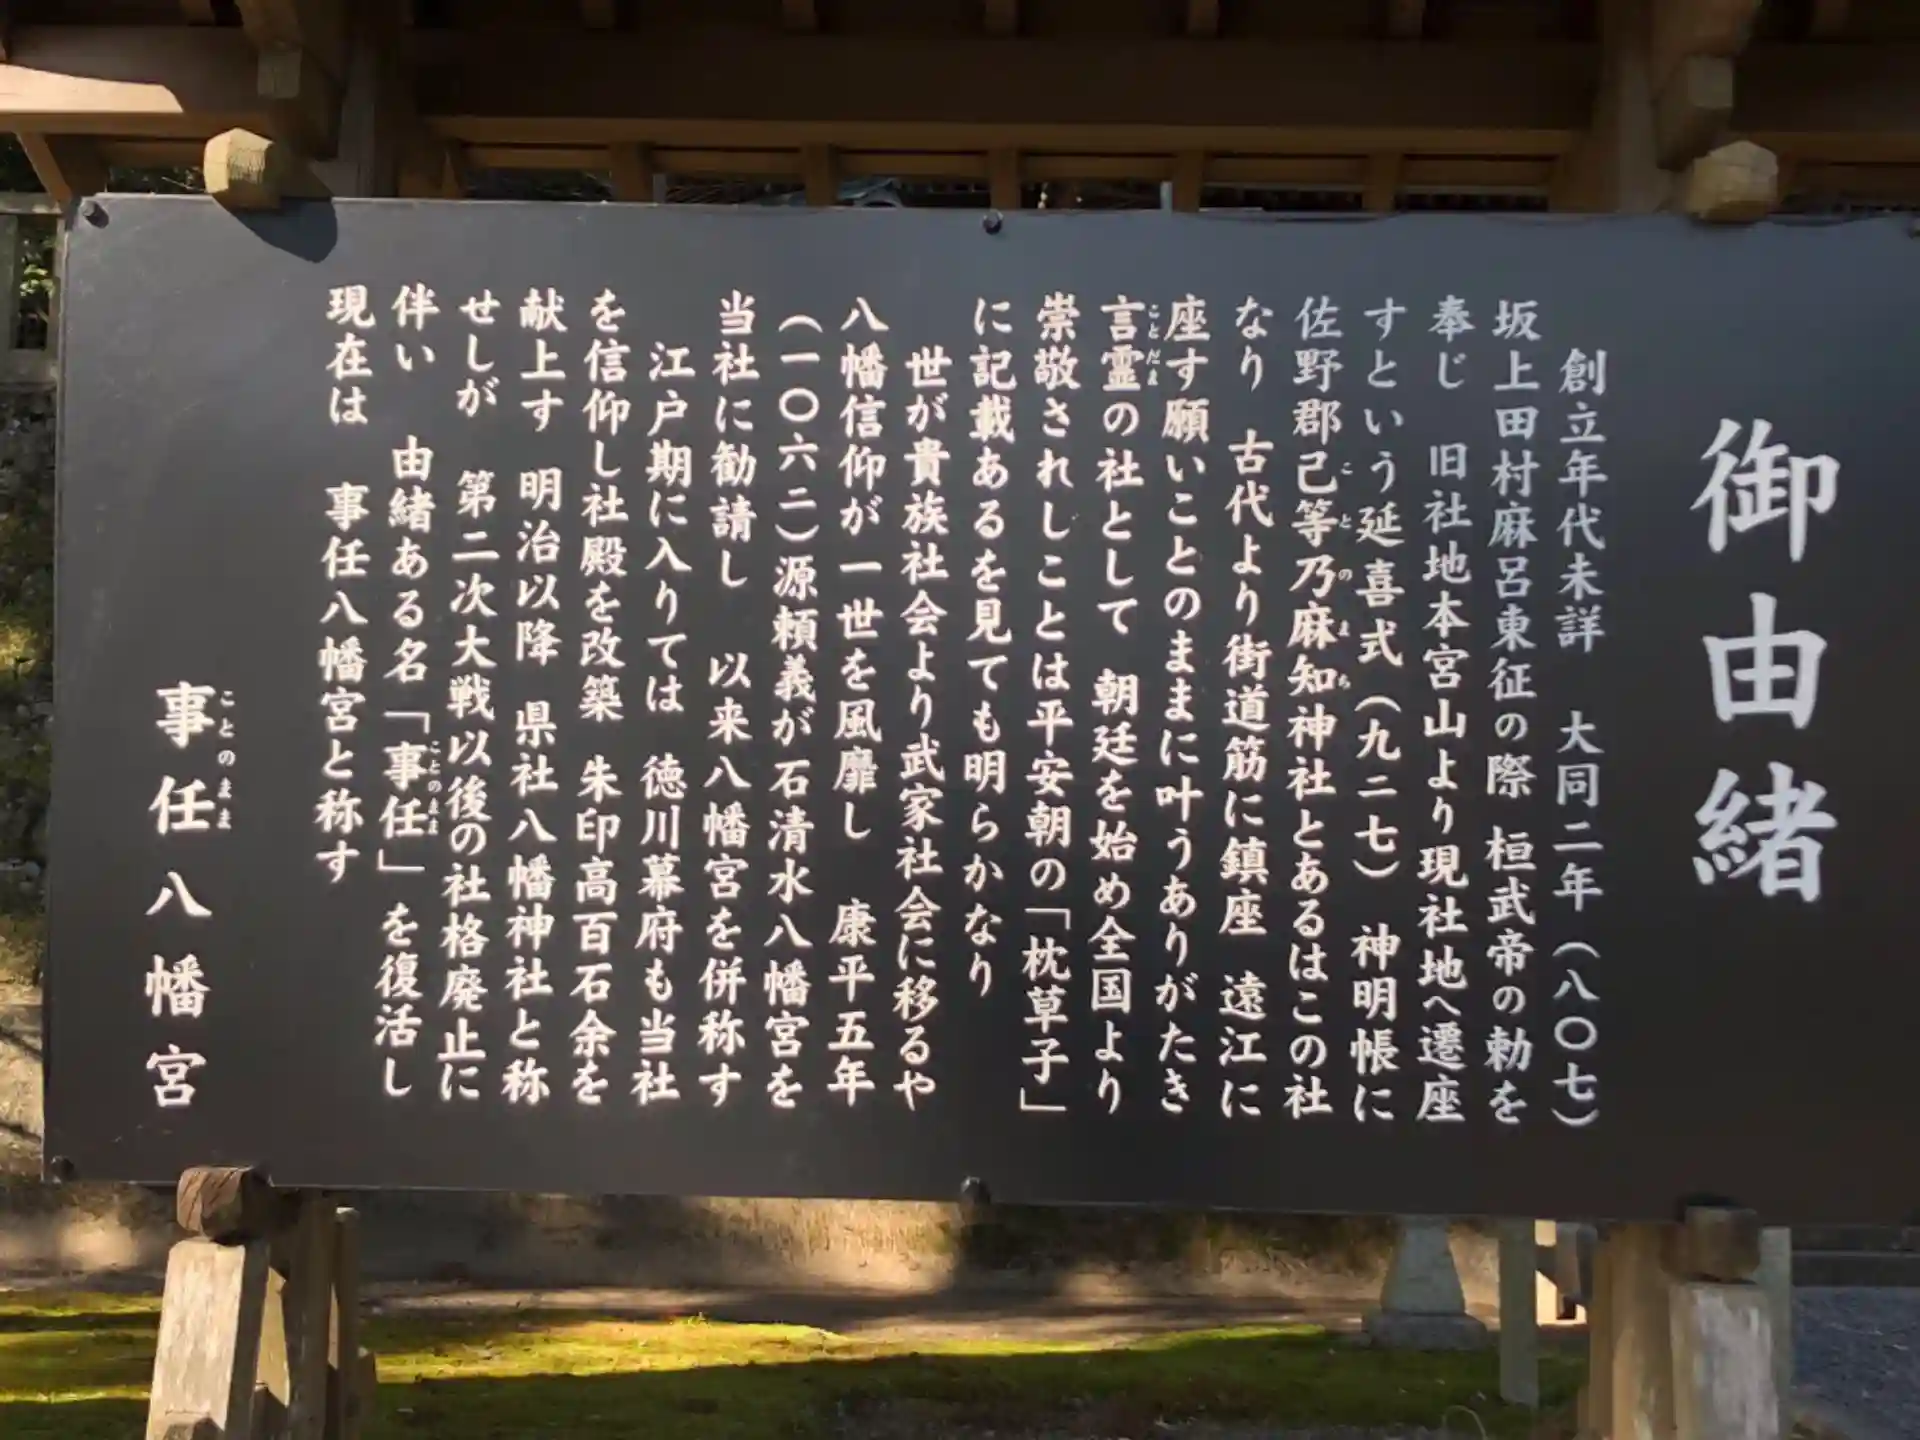 御由緒
創立年代未詳　大同二年（八〇七）
坂上田村麻呂東征の際　桓武帝の勅を
奉じ　旧社地本宮山より現社地へ遷座
すという延喜式（九二七）　神明帳に
佐野郡己等乃麻知神社とあるはこの社
ことのまち
なり　古代より街道筋に鎮座　遠江に
座す願いことのままに叶うありがたき
言霊の社として　朝廷を始め全国より
ことだま
崇敬されしことは平安朝の「枕草子」
に記載あるを見ても明らかなり
世が貴族社会より武家社会に移るや
八幡信仰が一世を風靡し　康平五年
（一〇六二）源頼義が石清水八幡宮を
当社に勧請し　以来八幡宮を併称す
江戸期に入りては　徳川幕府も当社
を信仰し社殿を改築　朱印高百石余を
献上す　明治以降　県社八幡神社と称
せしが　第二次大戦以後の社格廃止に
伴い　由緒ある名「事任」を復活し
ことのまま
現在は　事任八幡宮と称す
事任八幡宮
ことのまま